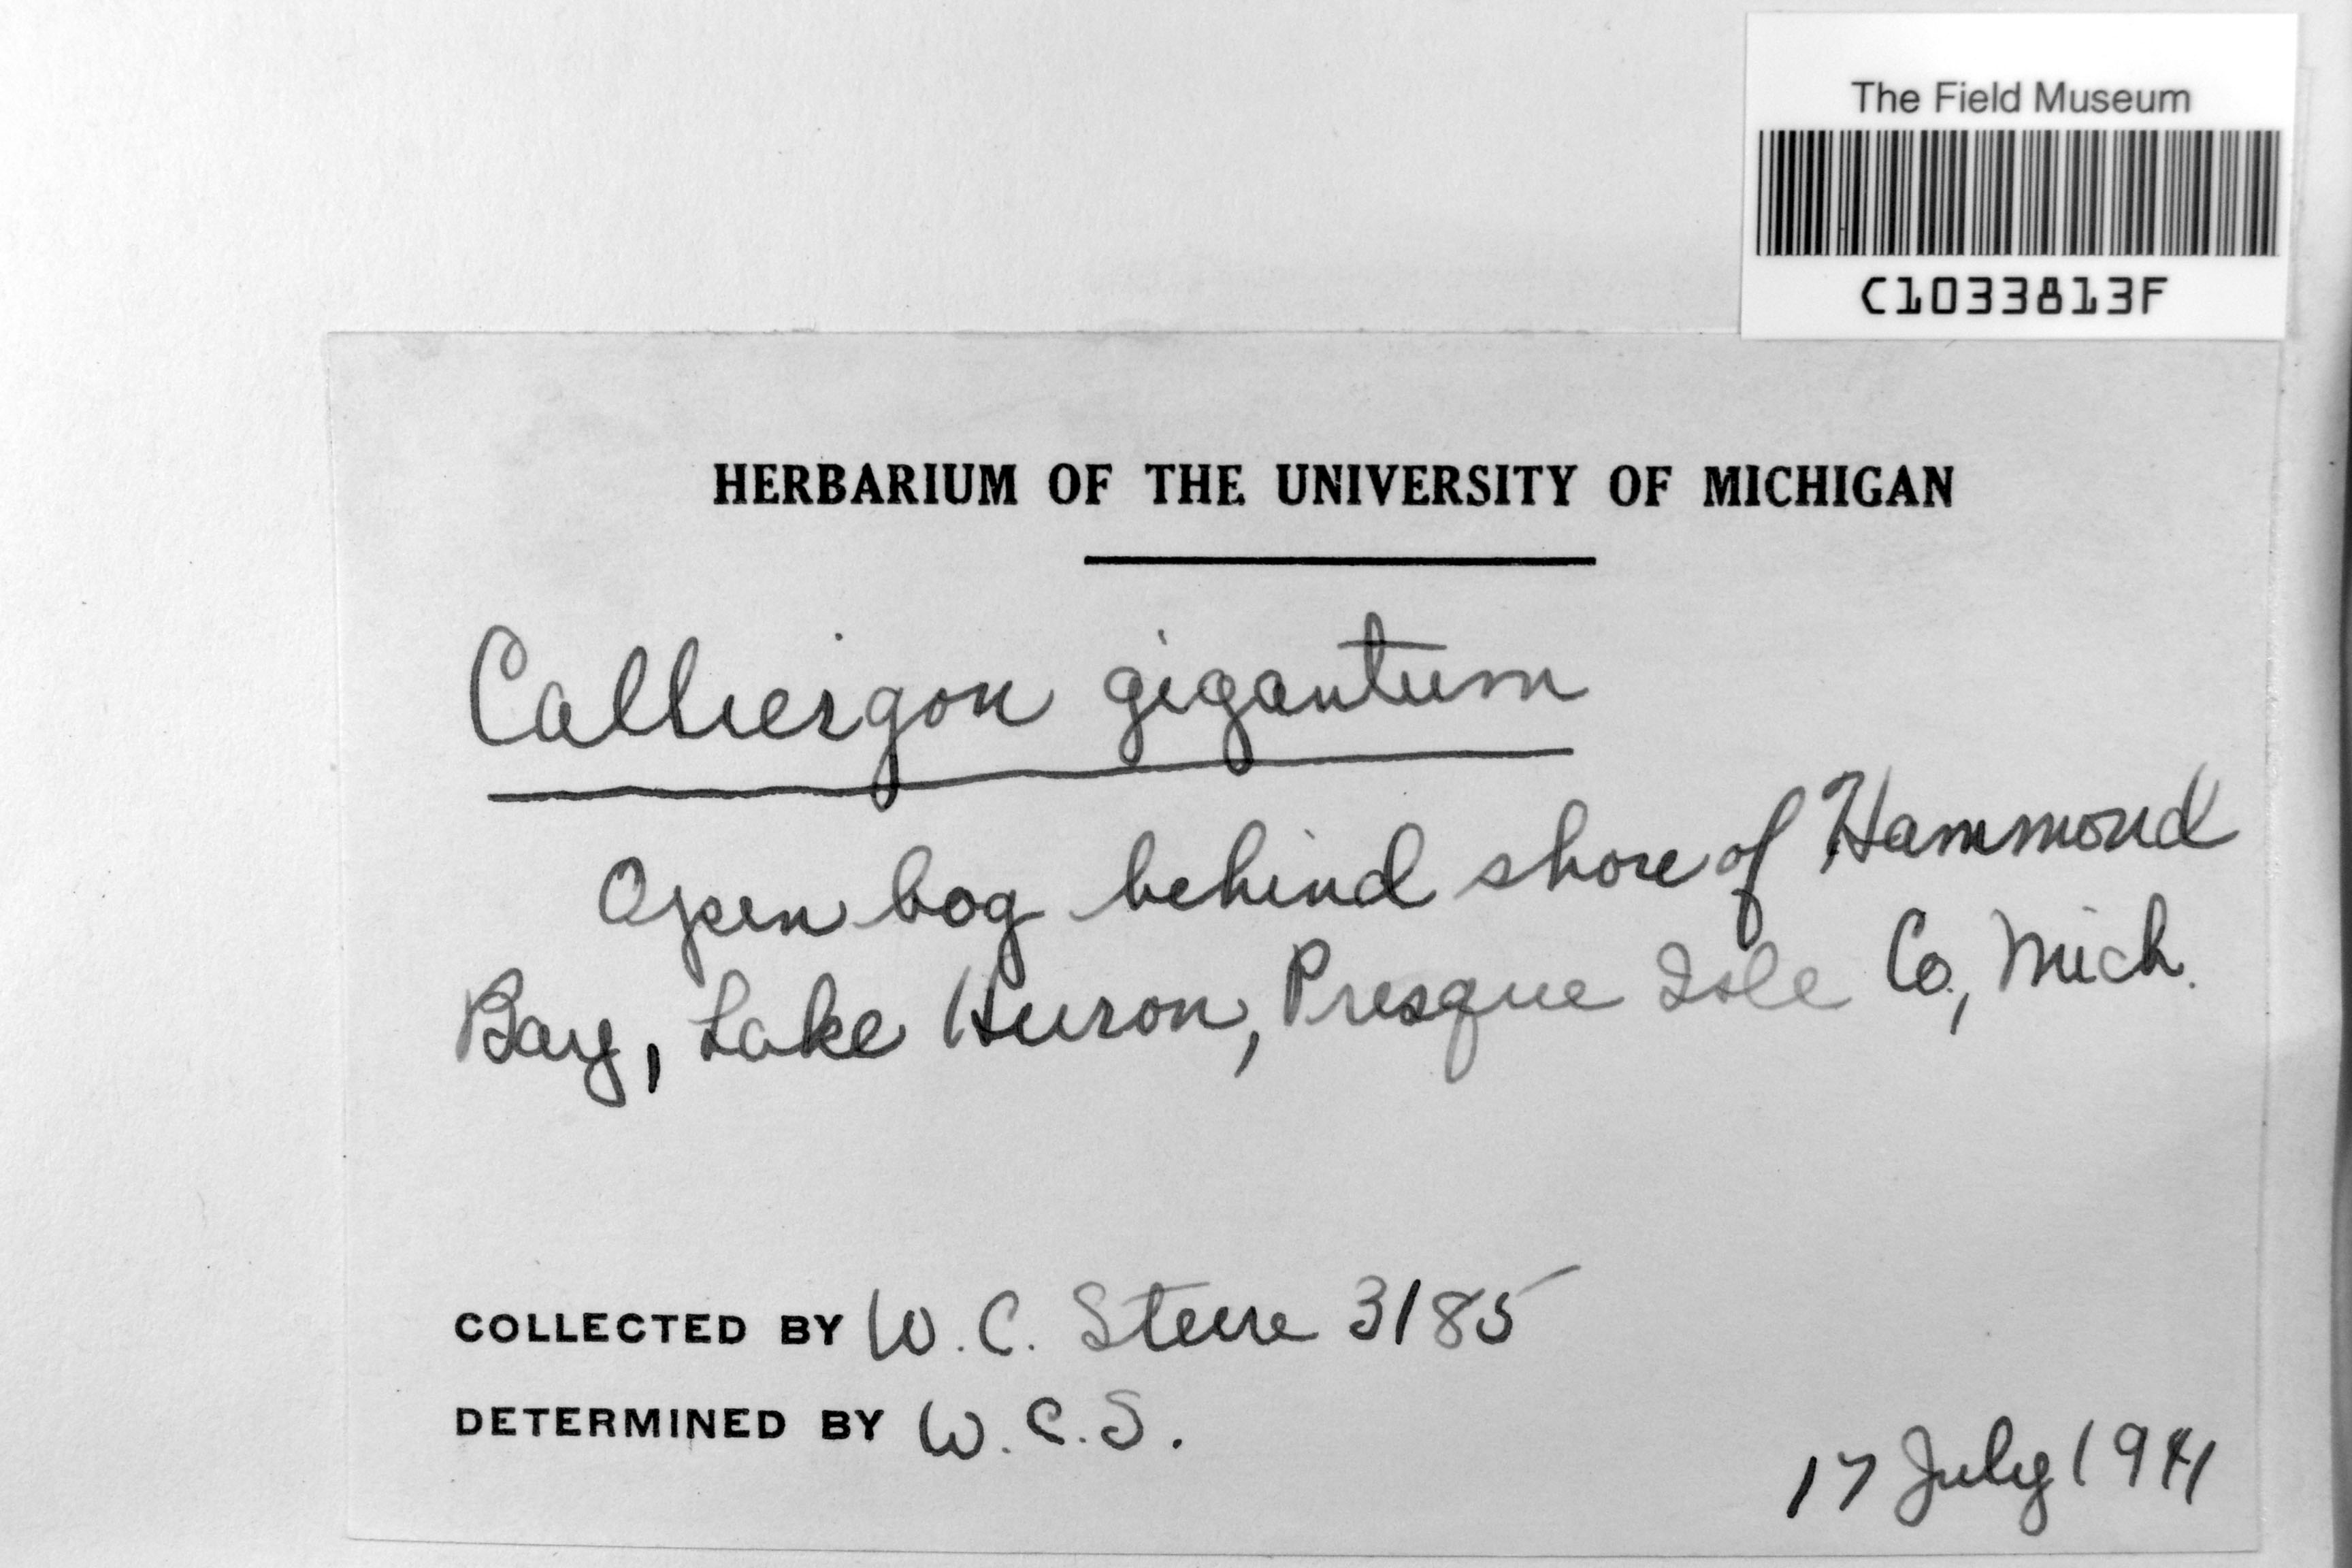 The Field Museum
C1033813F
HERBARIUM OF THE UNIVERSITY OF MICHIGAN
Calliergon gigantum
Open bog behind shore of Hammond
Bay, Lake Huron, Presque Isle Co., Mich.
COLLECTED BY W. C. Steere 3185
DETERMINED BY W.C.S.
17 July 1941